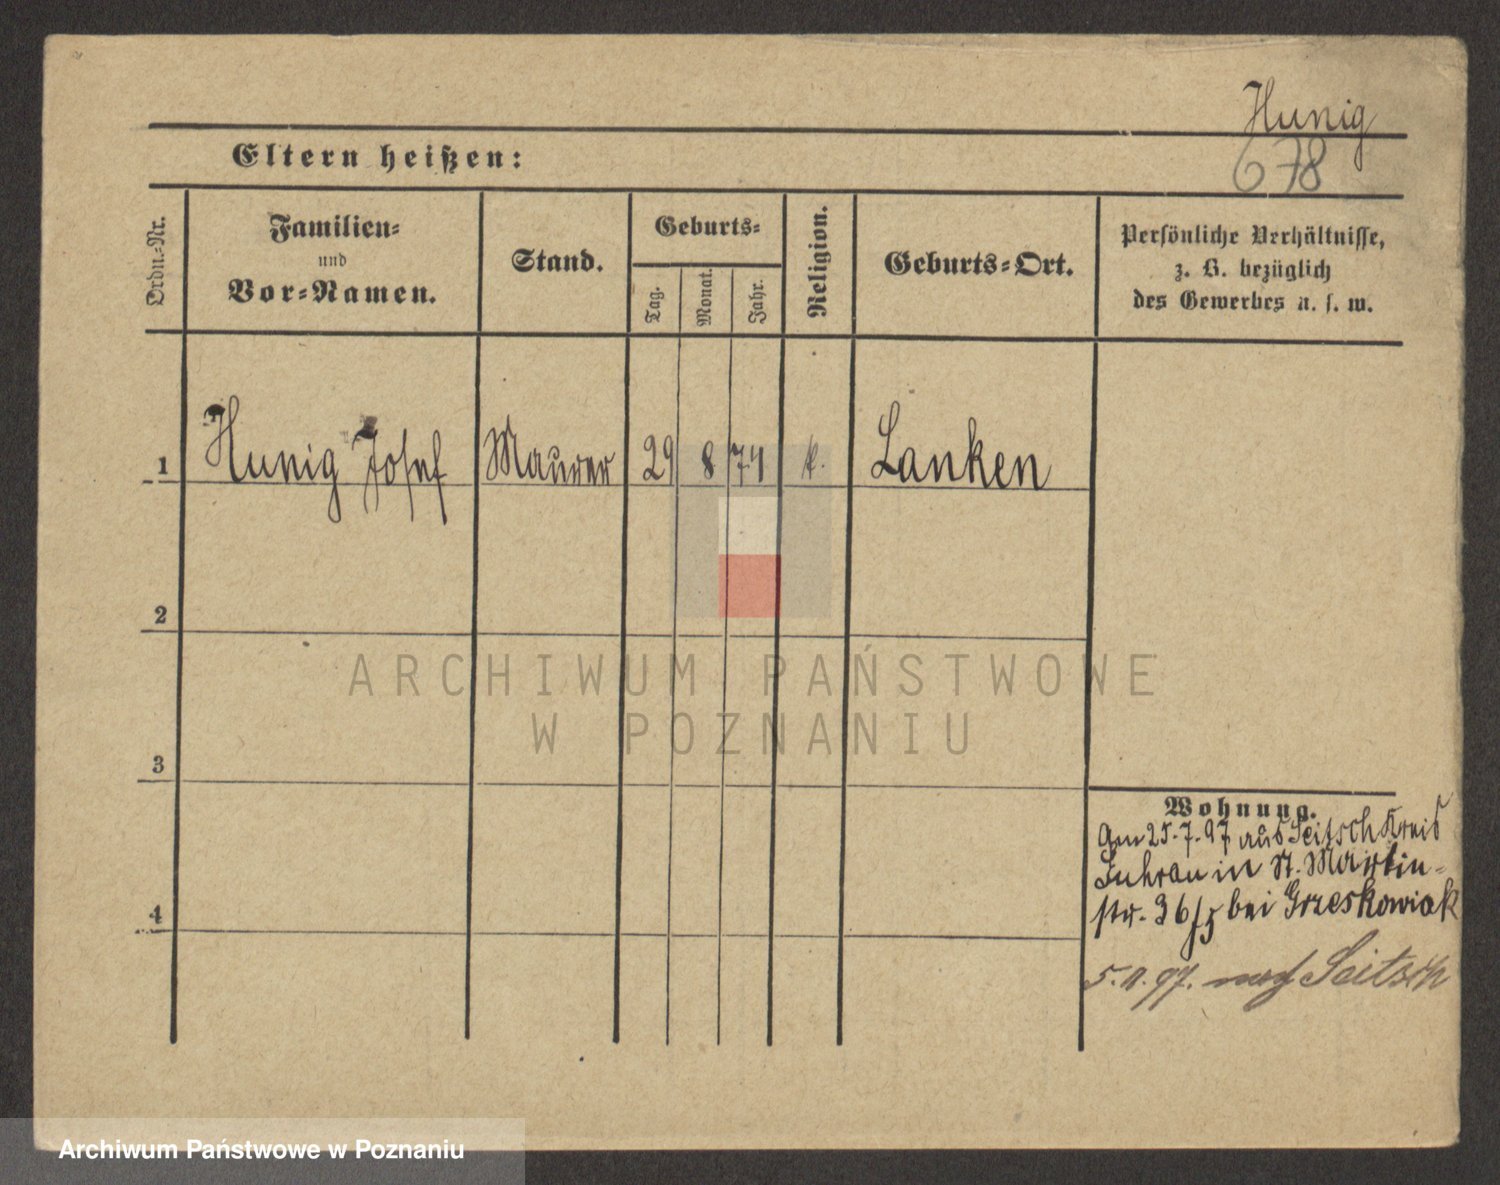 Hunig
678
Eltern heißen:
Ordn.-Nr.
Familien-
und
Vor-Namen.
Stand.
Geburts-
Tag.
Monat.
Jahr.
Religion.
Geburts-Ort.
Persönliche Verhältnisse,
z. B. bezüglich
des Gewerbes u. s. w.
1 Hunig Josef Maurer 29 8 74 k. Lanken
2
3
4
Wohnung.
Am 25.7.97 aus Seitsch Kreis
Guhrau in St. Martin-
str. 36/5 bei Grzeskowiak
5.11.97. nach Seitsch
ARCHIWUM PAŃSTWOWE
W POZNANIU
Archiwum Państwowe w Poznaniu